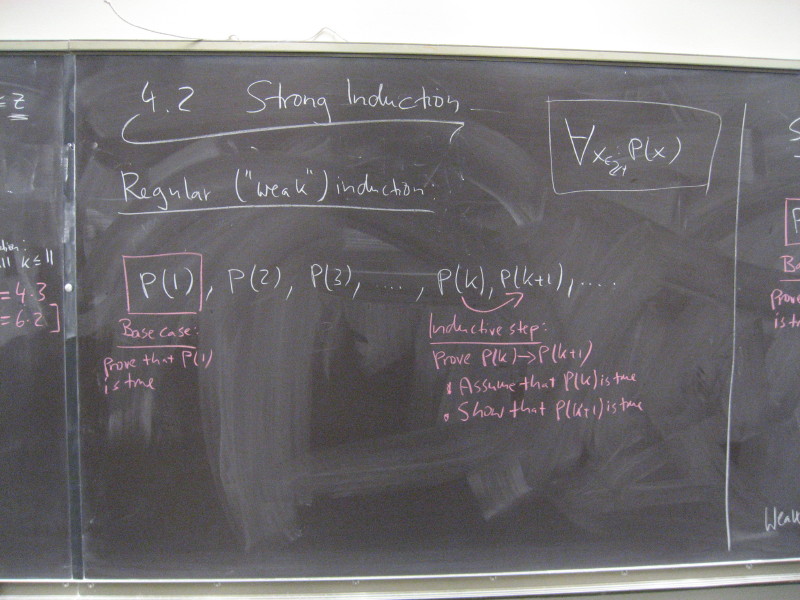 4.2 Strong Induction
∀x∈ℤ+ P(x)
Regular ("weak") induction:
P(1), P(2), P(3), ...., P(k), P(k+1), ....
Base case:
Prove that P(1)
is true
Inductive step:
Prove P(k)→P(k+1)
• Assume that P(k) is true
• Show that P(k+1) is true
∈ Z
k ≤ 11
= 4·3
= 6·2]
S
P
Ba
Prove
is tr
Weak